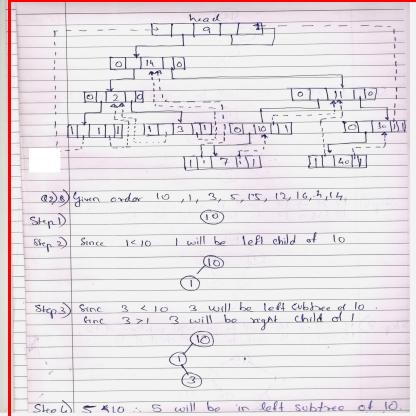 head
9 1
0 14 0
0 2 0 0 11 0
1 1 1 1 3 1 0 10 1 0 30 1
1 7 1 1 40 1
Q2)B) Given order 10, 1, 3, 5, 15, 12, 16, 4, 14.
Step 1)
10
Step 2) Since 1<10 1 will be left child of 10
10
1
Step 3) Since 3 < 10 3 will be left subtree of 10.
Sinc 3 >1 3 will be right child of 1
10
1
3
Step 4) 5 <10 ∴ 5 will be in left subtree of 10.